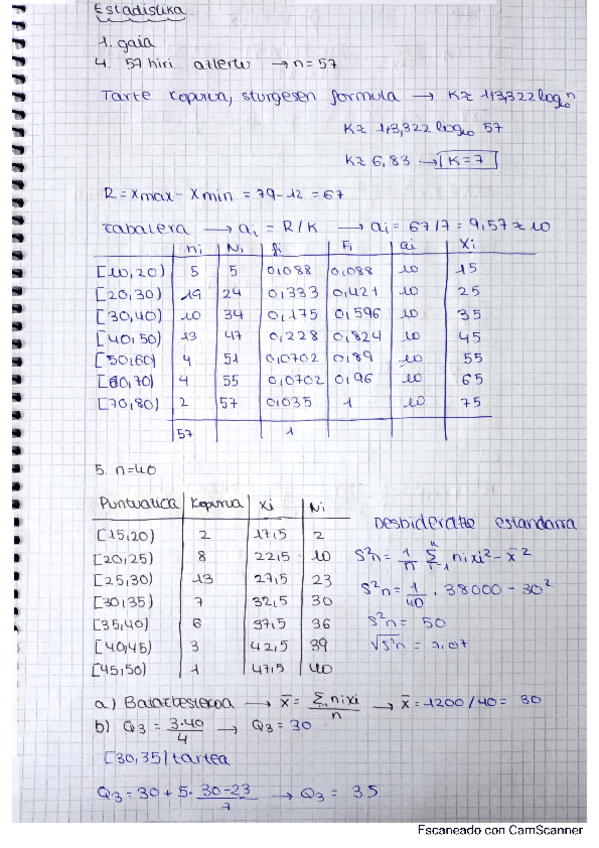 Estadistika
1. gaia
4. 57 hiri aztertu → n=57
Tarte kopurua, sturgesen formula → K≈ 1+3,322 log₁₀ n
K≈ 1+3,322 log₁₀ 57
K≈ 6,83 → K=7
R = xmax - xmin = 79-12 = 67
zabalera → ai = R/K → ai = 67/7 = 9,57 ≈ 10
ni Ni fi Fi ai Xi
[10,20) 5 5 0,088 0,088 10 15
[20,30) 19 24 0,333 0,421 10 25
[30,40) 10 34 0,175 0,596 10 35
[40,50) 13 47 0,228 0,824 10 45
[50,60) 4 51 0,0702 0,89 10 55
[60,70) 4 55 0,0702 0,96 10 65
[70,80) 2 57 0,035 1 10 75
57 1
5. n=40
Puntuazioa Kopurua Xi Ni
[15,20) 2 17,5 2
[20,25) 8 22,5 10
[25,30) 13 27,5 23
[30,35) 7 32,5 30
[35,40) 6 37,5 36
[40,45) 3 42,5 39
[45,50) 1 47,5 40
Desbideratze estandarra
S²n = 1/n Σ ni xi² - x̄²
S²n = 1/40 · 38000 - 30²
S²n = 50
√S²n = 7,07
a) Batazbestekoa → x̄ = Σ ni xi / n → x̄ = 1200/40 = 30
b) Q3 = 3·40/4 → Q3 = 30
[30,35) tartea
Q3 = 30 + 5 · 30-23/7 → Q3 = 35
Escaneado con CamScanner